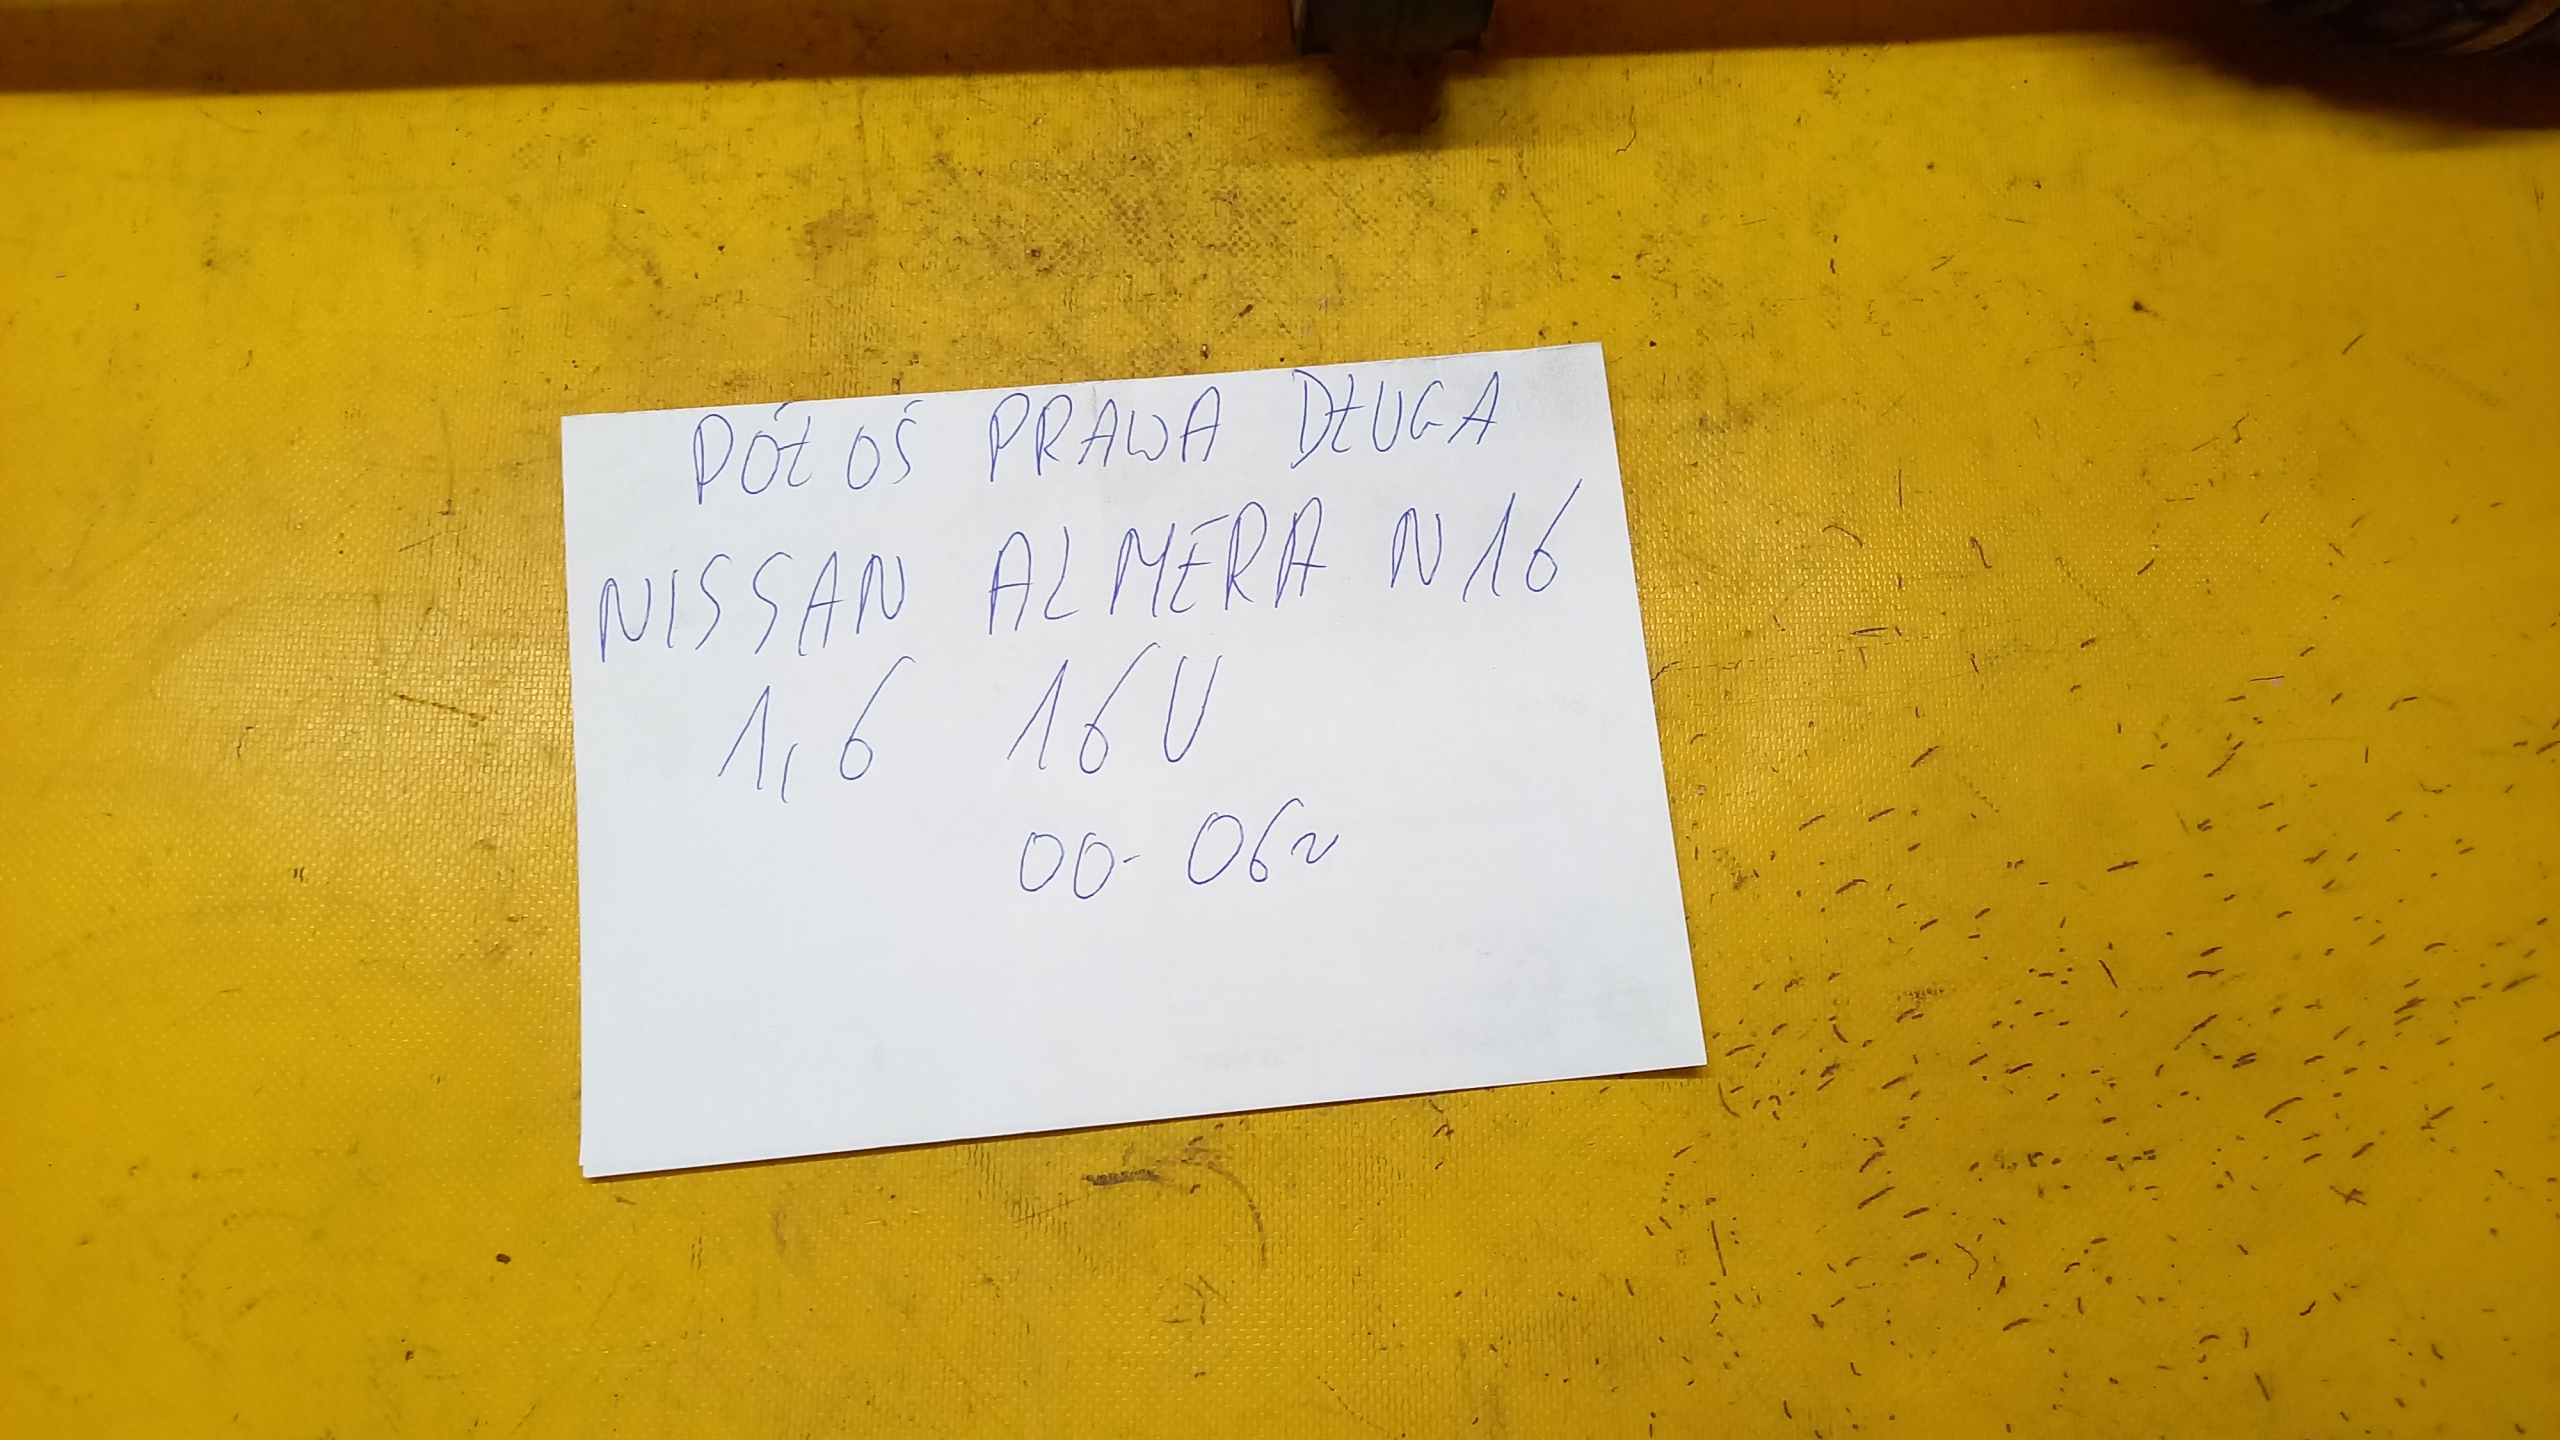 PÓŁOŚ PRAWA DŁUGA
NISSAN ALMERA N16
1,6 16V
00-06r